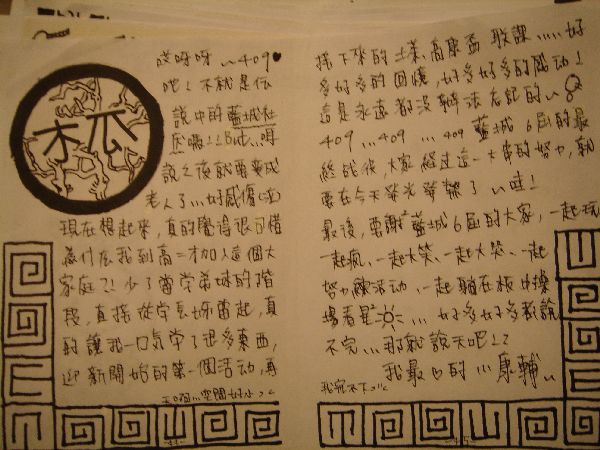 木瓜
哎呀呀~409♥
吧!不就是傳
說中的藍城社
成嗎!!Bui...呀
說之後就要變成
老人了...好感傷(淚)
現在想起來,真的覺得很可惜
為什麼我到高二才加入這個大
家庭??少了當學弟妹的階
段,直接從學長姊當起,真
的讓我一口氣學了很多東西,
迎新開始的第一個活動,再
和宿...空間好小>"<
-44-
接下來的土漾、高康畜聯課....好
多好多的回憶,好多好多的感動!
這是永遠都沒辦法忘記的~
409...409...409藍城6屆的最
終戰役,大家經過這一大串的努力,就
要在今天發光發熱了~哇!
最後,要謝謝藍城6屆的大家,一起玩
一起瘋、一起大笑、一起大哭、一起
努力練活動、一起躺在板中操
場看星星...好多好多都說
不完...那就說不完吧!!
我最♥的...康輔~
我寫不下...
-45-